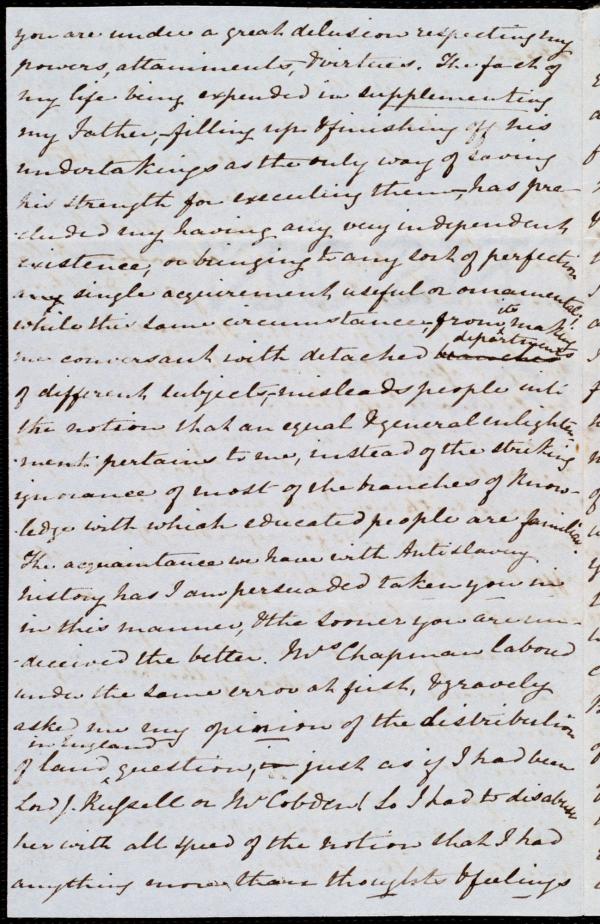 you are under a great delusion respecting my
powers, attainments, & virtues. The fact of
my life being expended in supplementing
my Father, filling up & finishing off his
undertakings as the only way of saving
his strength for executing them, has pre-
-cluded my having any very independent
existence, or bringing to any sort of perfection
any single acquirement useful or ornamental,
while this same circumstance, from its making
me conversant with detached departments
of different subjects, misleads people into
the notion that an equal & general enlighten
-ment pertains to me, instead of the striking
ignorance of most of the branches of know-
-ledge with which educated people are familiar.
The acquaintance we have with Antislavery
history has I am persuaded taken you in
in this manner, & the sooner you are un-
-deceived the better. Mrs Chapman labored
under the same error at first, & gravely
asked me my opinion of the distribution
of land in England question, just as if I had been
Lord J. Russell or Mr Cobden! So I had to disabuse
her with all speed of the notion that I had
anything more than thoughts & feelings